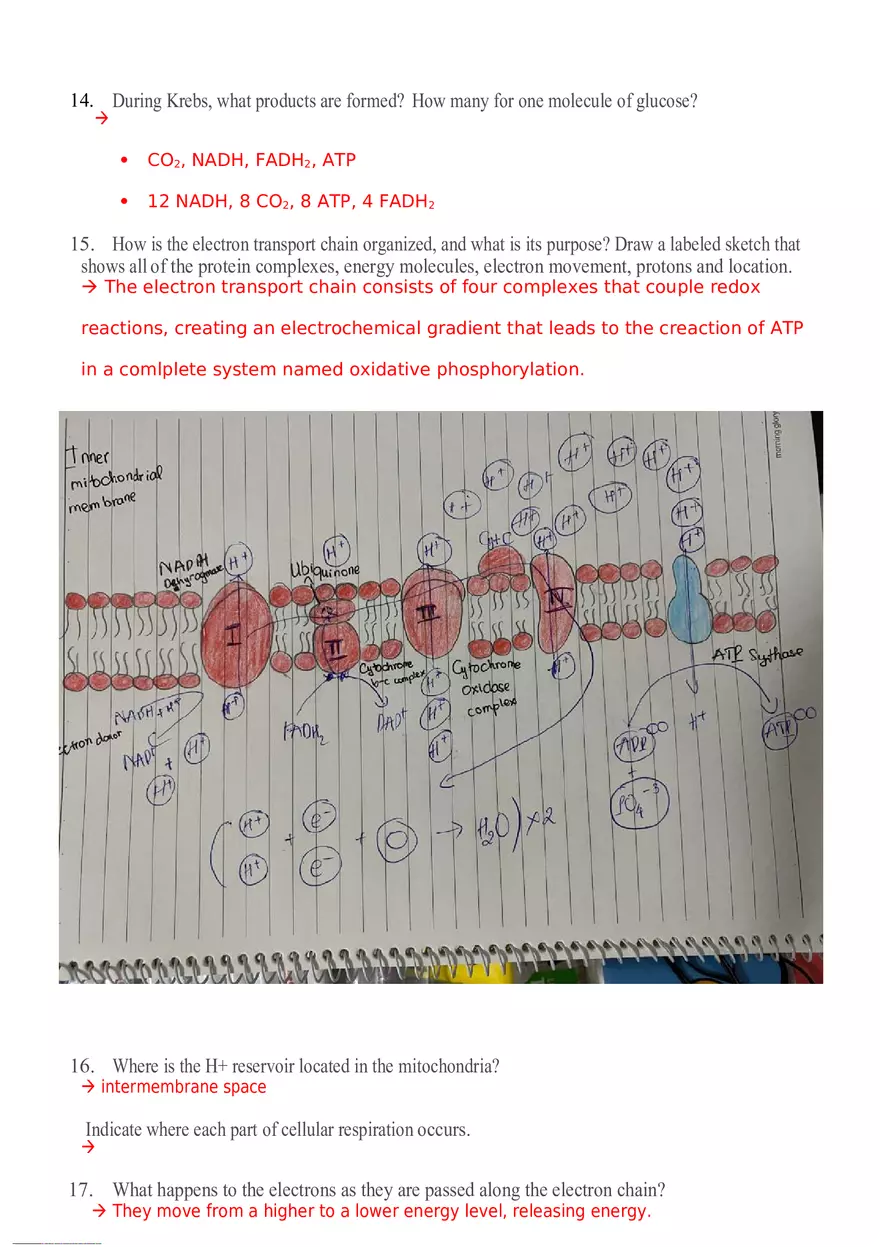 14. During Krebs, what products are formed? How many for one molecule of glucose?
→
• CO₂, NADH, FADH₂, ATP
• 12 NADH, 8 CO₂, 8 ATP, 4 FADH₂
15. How is the electron transport chain organized, and what is its purpose? Draw a labeled sketch that
shows all of the protein complexes, energy molecules, electron movement, protons and location.
→ The electron transport chain consists of four complexes that couple redox
reactions, creating an electrochemical gradient that leads to the creaction of ATP
in a comlplete system named oxidative phosphorylation.
morning glory
Inner
mitochondrial
membrane
H⁺ H⁺ H⁺ H⁺
H⁺ H⁺ H⁺
H⁺ H⁺ H⁺
H⁺ H⁺ H⁺ H⁺ H⁺
Ubiquinone
I II III
Cytochrome
b-c complex
Cytochrome
oxidase
complex
ATP Sythase
H⁺ H⁺ H⁺
NADH + H⁺
ctron donor
NAD⁺
+
H⁺
H⁺
FADH₂
DAD⁺
H⁺
H⁺
H⁺
ADP
+
PO₄⁻³
ATP
(H⁺ H⁺ + e⁻ e⁻ + O → H₂O) x2
16. Where is the H+ reservoir located in the mitochondria?
→ intermembrane space
Indicate where each part of cellular respiration occurs.
→
17. What happens to the electrons as they are passed along the electron chain?
→ They move from a higher to a lower energy level, releasing energy.